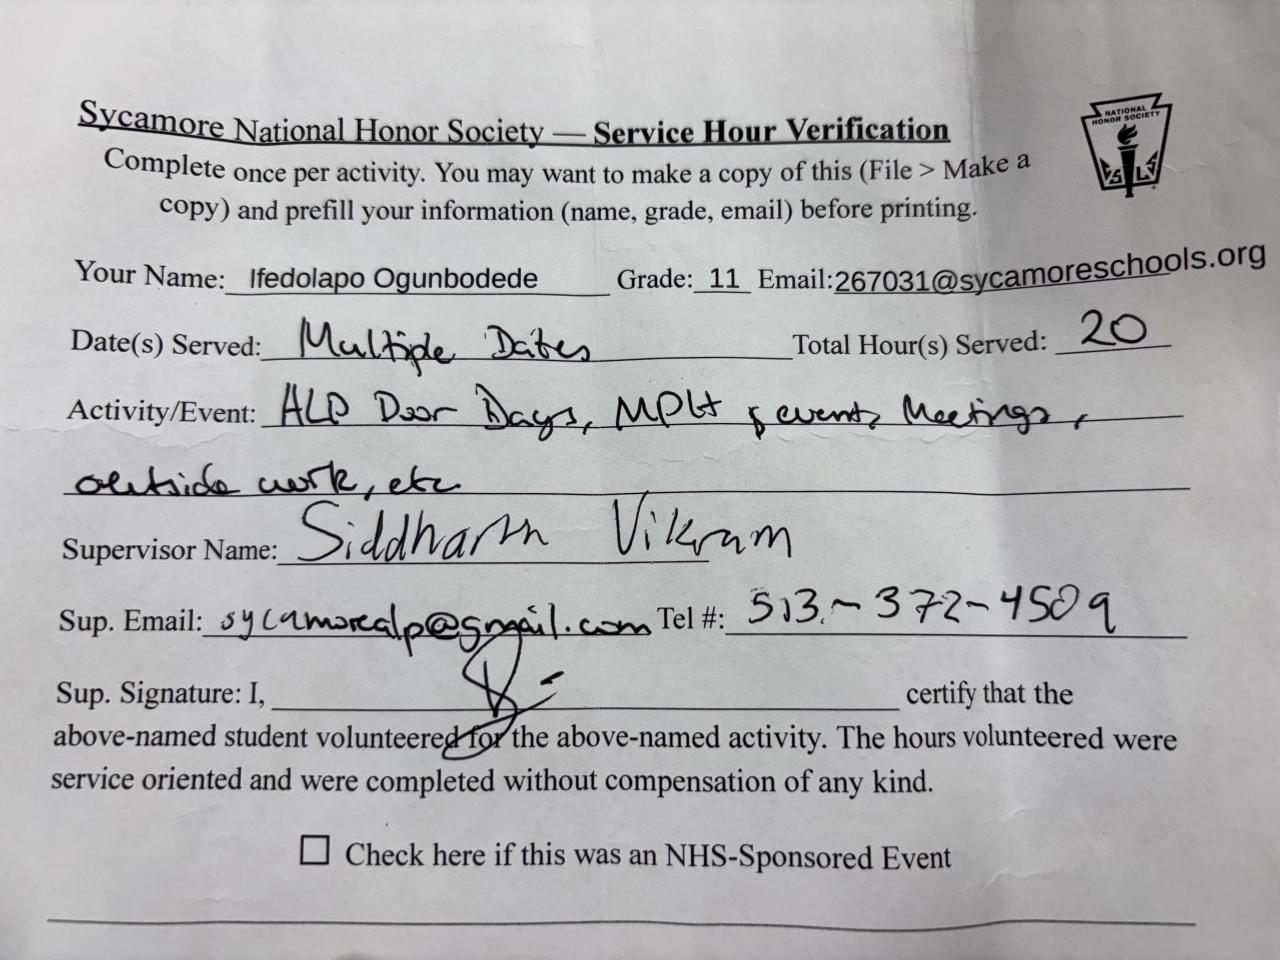 Sycamore National Honor Society — Service Hour Verification
NATIONAL
HONOR SOCIETY
Complete once per activity. You may want to make a copy of this (File > Make a
copy) and prefill your information (name, grade, email) before printing.
Your Name: Ifedolapo Ogunbodede Grade: 11 Email:267031@sycamoreschools.org
Date(s) Served: Multiple Dates Total Hour(s) Served: 20
Activity/Event: ALP Door Days, MPLH & events, Meetings,
outside work, etc.
Supervisor Name: Siddharth Vikram
Sup. Email: sycamorealp@gmail.com Tel #: 513-372-4509
Sup. Signature: I, certify that the
above-named student volunteered for the above-named activity. The hours volunteered were
service oriented and were completed without compensation of any kind.
☐ Check here if this was an NHS-Sponsored Event